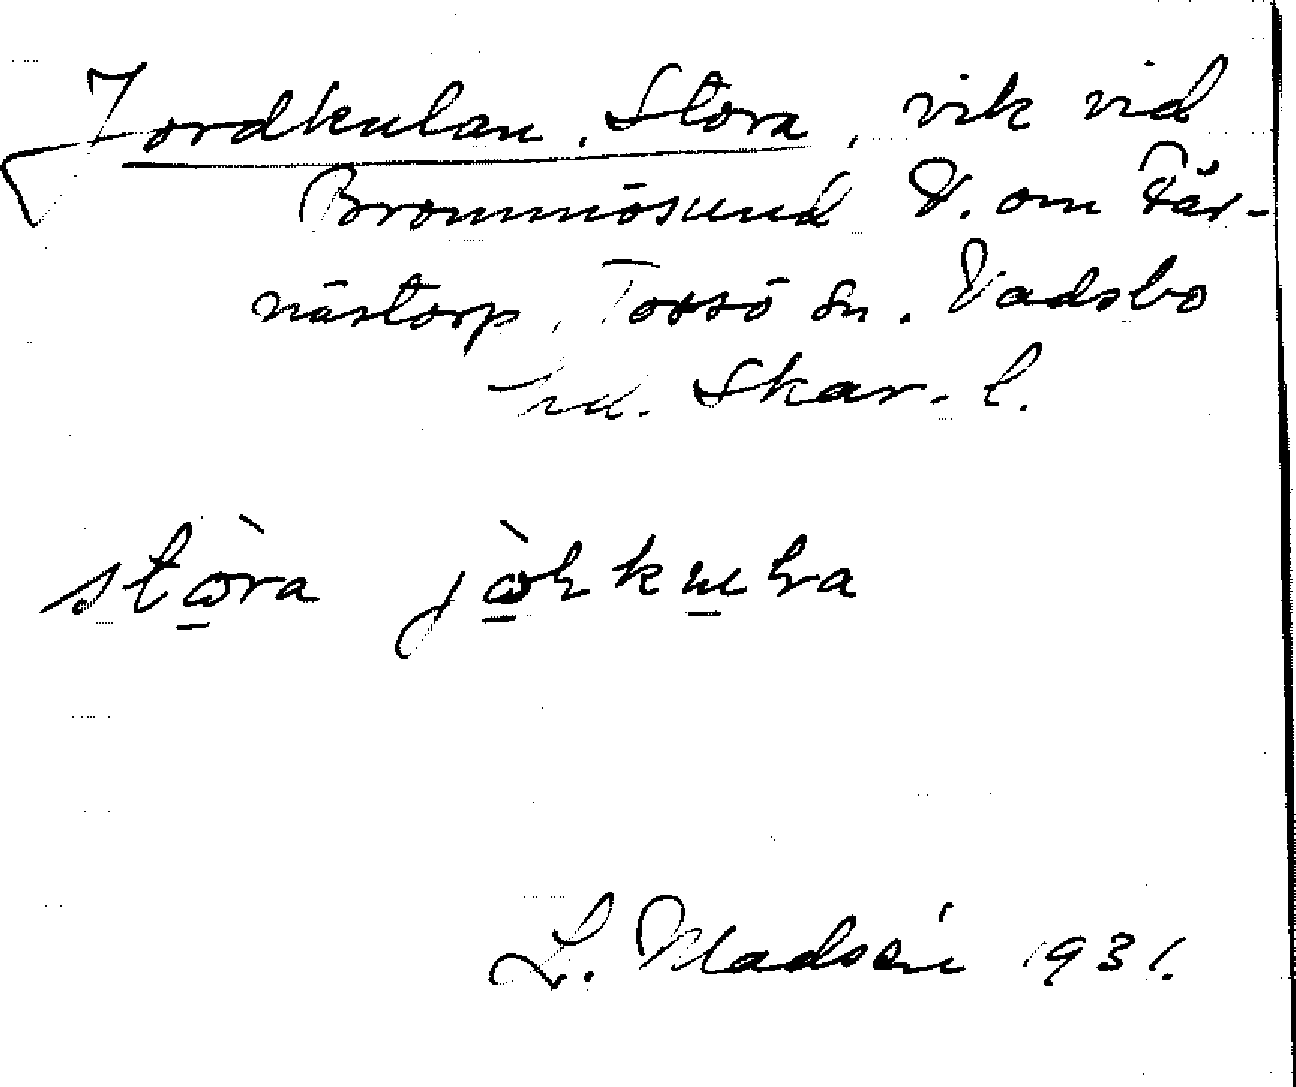 Jordkulan, Stora, vik vid
Brommösund V. om Fär-
nästorp, Torsö sn. Vadsbo
hd. Skar. l.
stὼra jὼɫkuɫa
L. Madsén 1931.